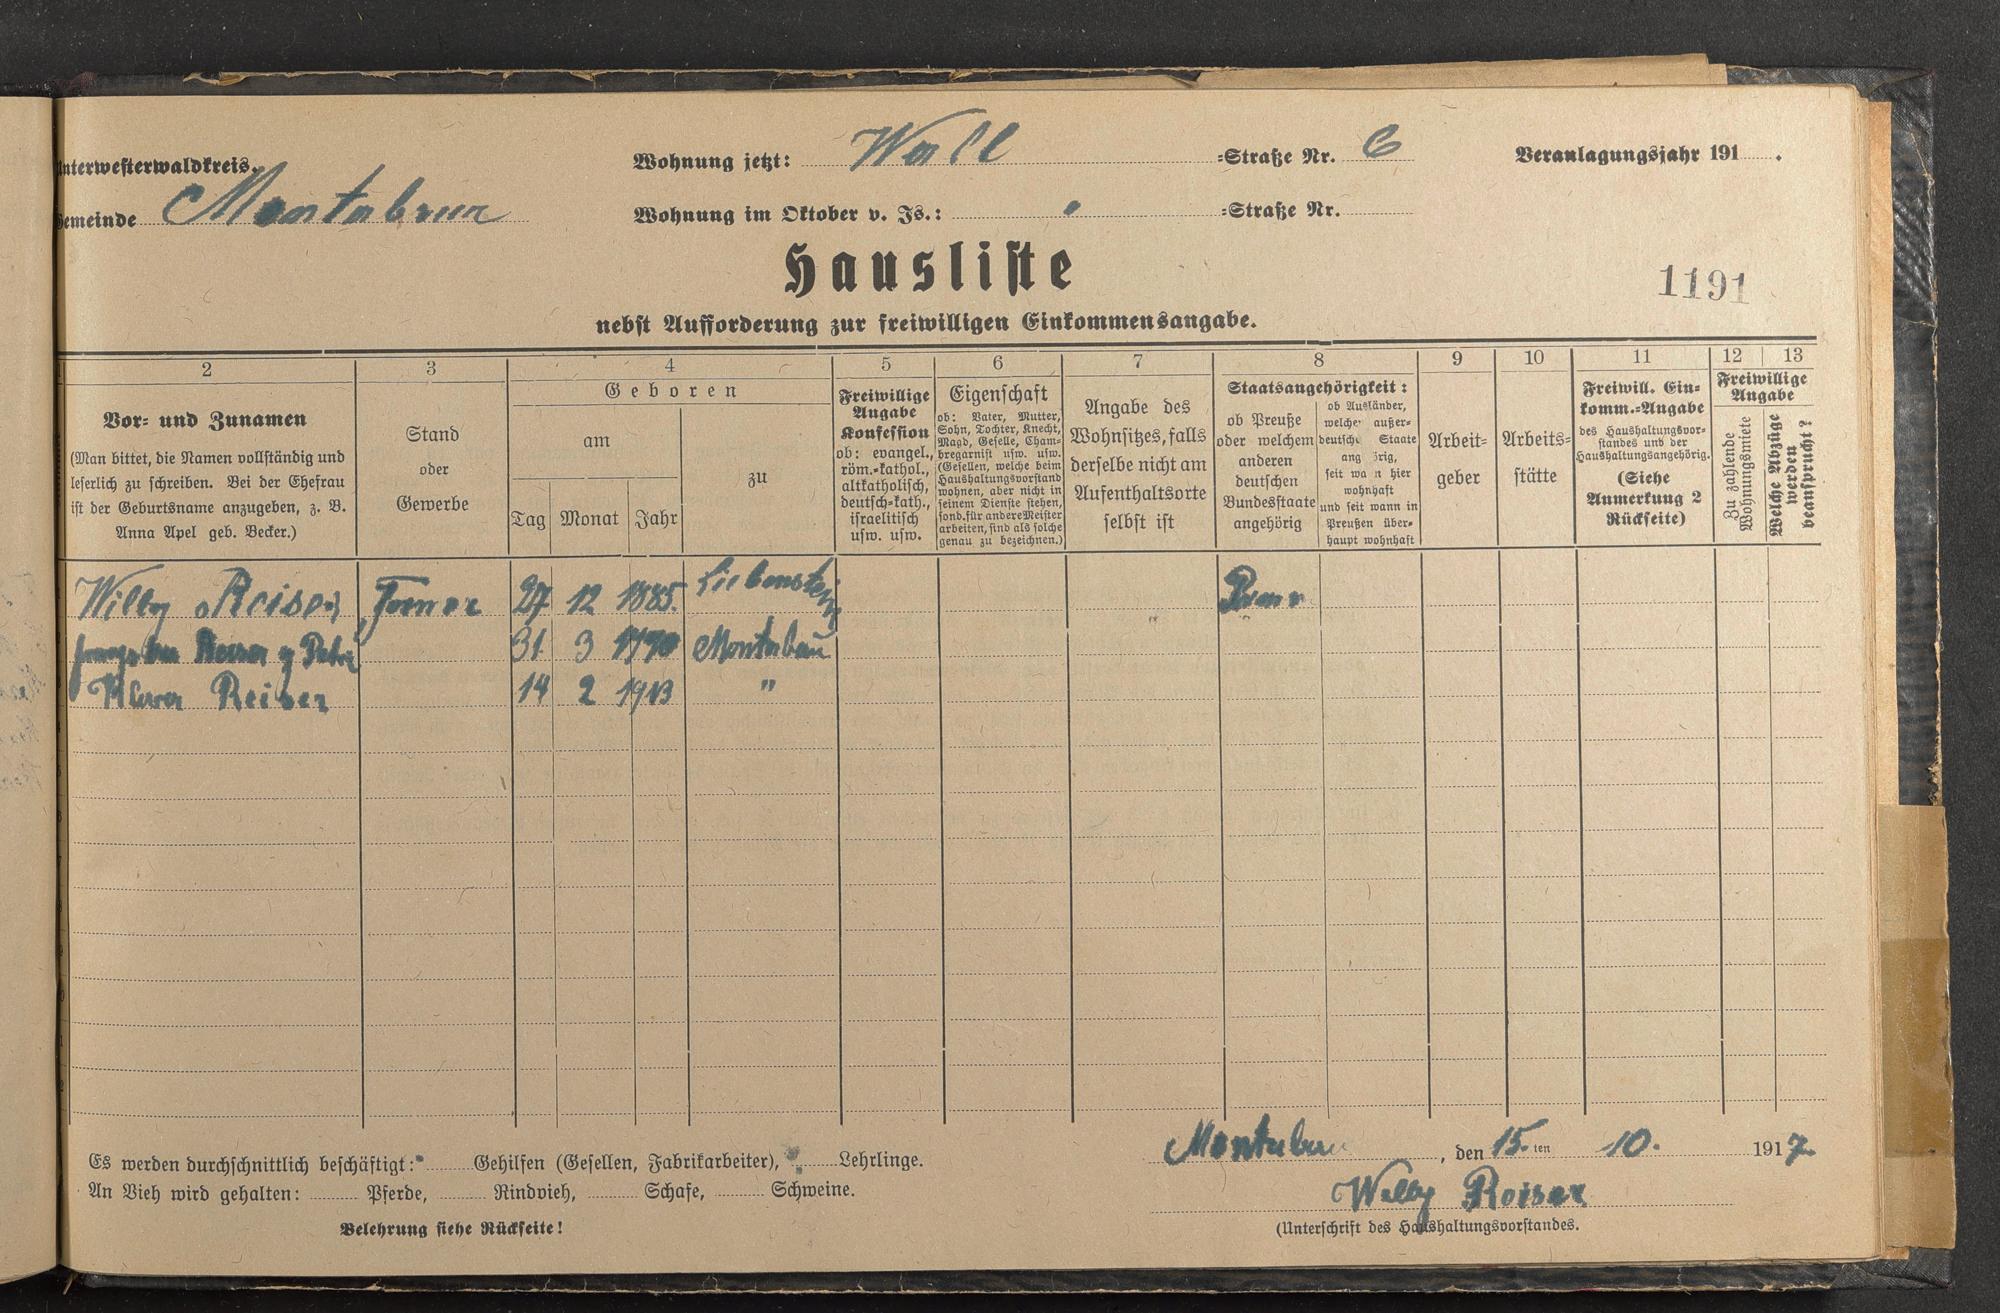 Unterwesterwaldkreis.
Gemeinde Montabaur
Wohnung jetzt: Wall =Straße Nr. 6
Wohnung im Oktober v. Js.: =Straße Nr.
Veranlagungsjahr 191 .
Hausliste
1191
nebst Aufforderung zur freiwilligen Einkommensangabe.
2 3 4 5 6 7 8 9 10 11 12 13
Vor- und Zunamen
(Man bittet, die Namen vollständig und
leserlich zu schreiben. Bei der Ehefrau
ist der Geburtsname anzugeben, z. B.
Anna Apel geb. Becker.)
Stand
oder
Gewerbe
Geboren
am
zu
Tag Monat Jahr
Freiwillige
Angabe
Konfession
ob: evangel.,
röm.-kathol.,
altkatholisch,
deutsch-kath.,
israelitisch
usw. usw.
Eigenschaft
ob: Vater, Mutter,
Sohn, Tochter, Knecht,
Magd, Geselle, Cham-
bregarnist usw. usw.
(Gesellen, welche beim
Haushaltungsvorstand
wohnen, aber nicht in
seinem Dienste stehen,
sond. für andere Meister
arbeiten, sind als solche
genau zu bezeichnen.)
Angabe des
Wohnsitzes, falls
derselbe nicht am
Aufenthaltsorte
selbst ist
Staatsangehörigkeit:
ob Preuße
oder welchem
anderen
deutschen
Bundesstaate
angehörig
ob Ausländer,
welchem außer-
deutschen Staate
angehörig,
seit wann hier
wohnhaft
und seit wann in
Preußen über-
haupt wohnhaft
Arbeit-
geber
Arbeits-
stätte
Freiwill. Ein-
komm.-Angabe
des Haushaltungsvor-
standes und der
Haushaltungsangehörig.
(Siehe
Anmerkung 2
Rückseite)
Freiwillige
Angabe
Zu zahlende
Wohnungsmiete
Welche Abzüge
werden
beansprucht?
Willy Reiser 27 12 1885. Liebenstein
Reiser 31. 3 1890 Montabaur
Reiser 14 2 1913 "
Es werden durchschnittlich beschäftigt: Gehilfen (Gesellen, Fabrikarbeiter), Lehrlinge.
An Vieh wird gehalten: Pferde, Rindvieh, Schafe, Schweine.
Belehrung siehe Rückseite!
Montabaur, den 15. ten 10. 1917
Willy Reiser
(Unterschrift des Haushaltungsvorstandes.